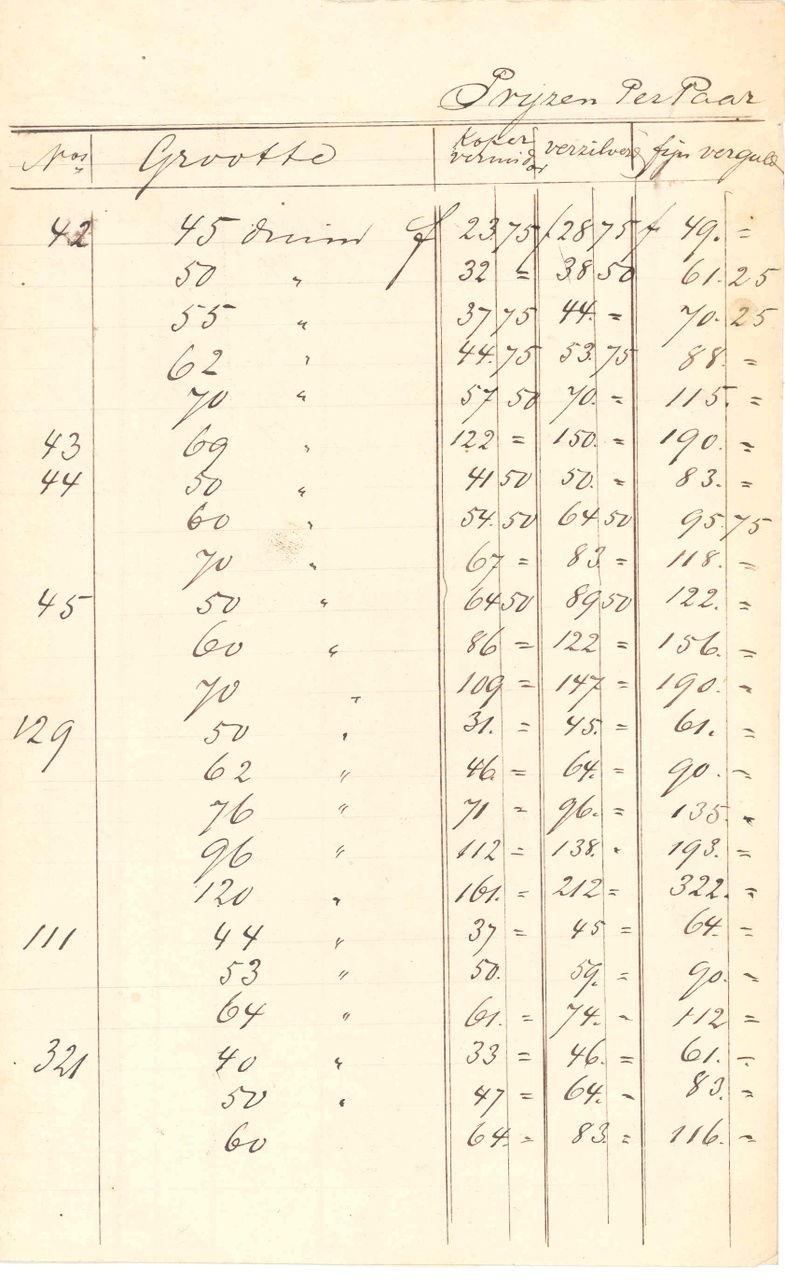 Pryzen Per Paar
Nos Grootte Koper vernist verzilverd fijn verguld
42 45 duim f 23 75 f 28 75 f 49. =
50 " 32 = 38 50 61. 25
55 " 37 75 44. = 70. 25
62 " 44. 75 53. 75 88. =
70 " 57 50 70. = 115. =
43 69 " 122 = 150. = 190. =
44 50 " 41 50 50. = 83. =
60 " 54. 50 64 50 95. 75
70 " 67 = 83. = 118. =
45 50 " 64 50 89 50 122. =
60 " 86 = 122 = 156. =
70 " 109 = 147 = 190. =
129 50 " 31. = 45. = 61. =
62 " 46 = 64. = 90. =
76 " 71 = 96. = 135. =
96 " 112 = 138. = 193. =
120 " 161. = 212 = 322. =
111 44 " 37 = 45 = 64. =
53 " 50. 59. = 90. =
64 " 61. = 74. = 112 =
321 40 " 33 = 46. = 61. =
50 " 47 = 64. = 83. =
60 64. = 83. = 116. =